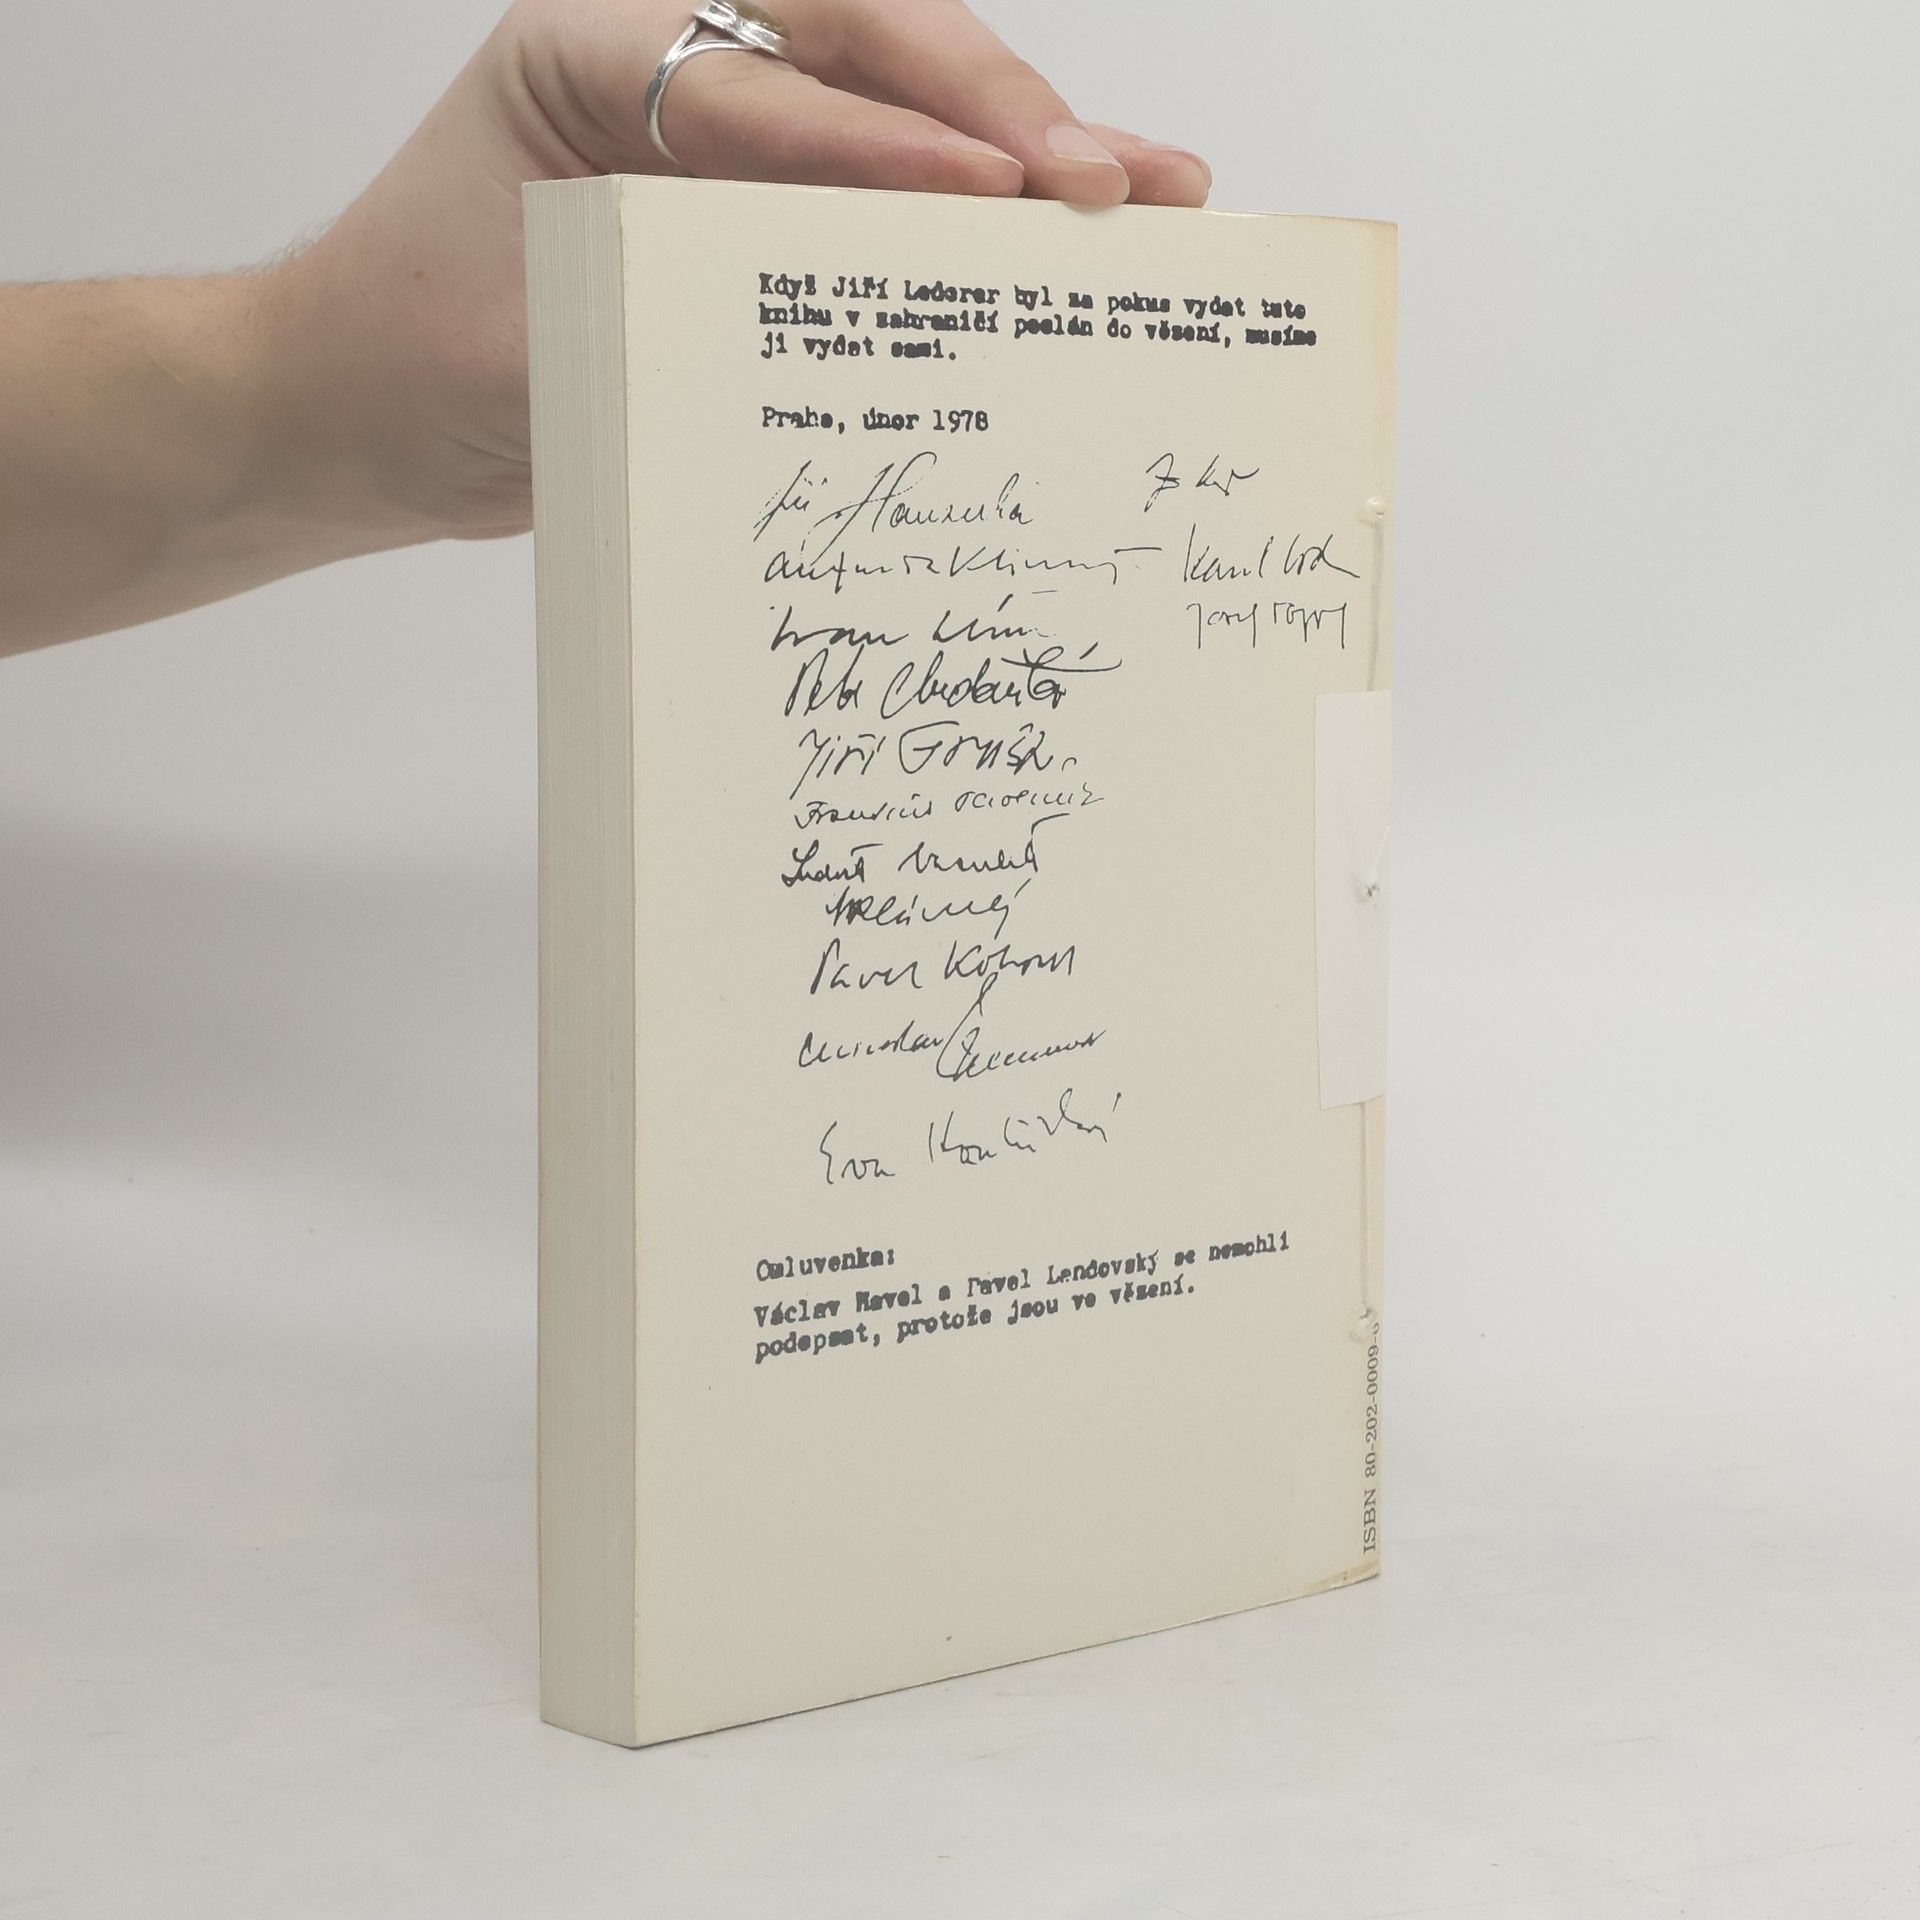 Když Jiří Lederer byl za pokus vydat tuto
knihu v zahraničí poslán do vězení, musíme
ji vydat sami.
Praha, únor 1978
Jiří Hanzelka
Ivan Klíma
Petr Chudožilov
Jiří Gruša
František Pavlíček
Ludvík Vaculík
Pavel Kohout
Eva Kantůrková
Karol Sidon
Josef Topol
Omluvenka:
Václav Havel a Pavel Landovský se nemohli
podepsat, protože jsou ve vězení.
ISBN 80-202-0009-6